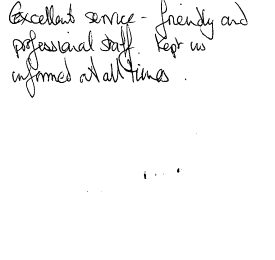 Excellent service - friendly and
professional staff. Kept us
informed at all times.